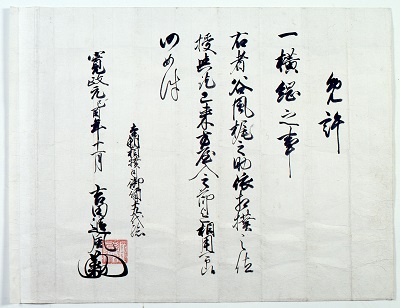 免許
一横綱之事
右者谷風梶之助依相撲之位
授与畢已来方屋入之節迄相用可
仍如件
本朝相撲司御行司十九代
寛政元己酉年十一月 吉田追風